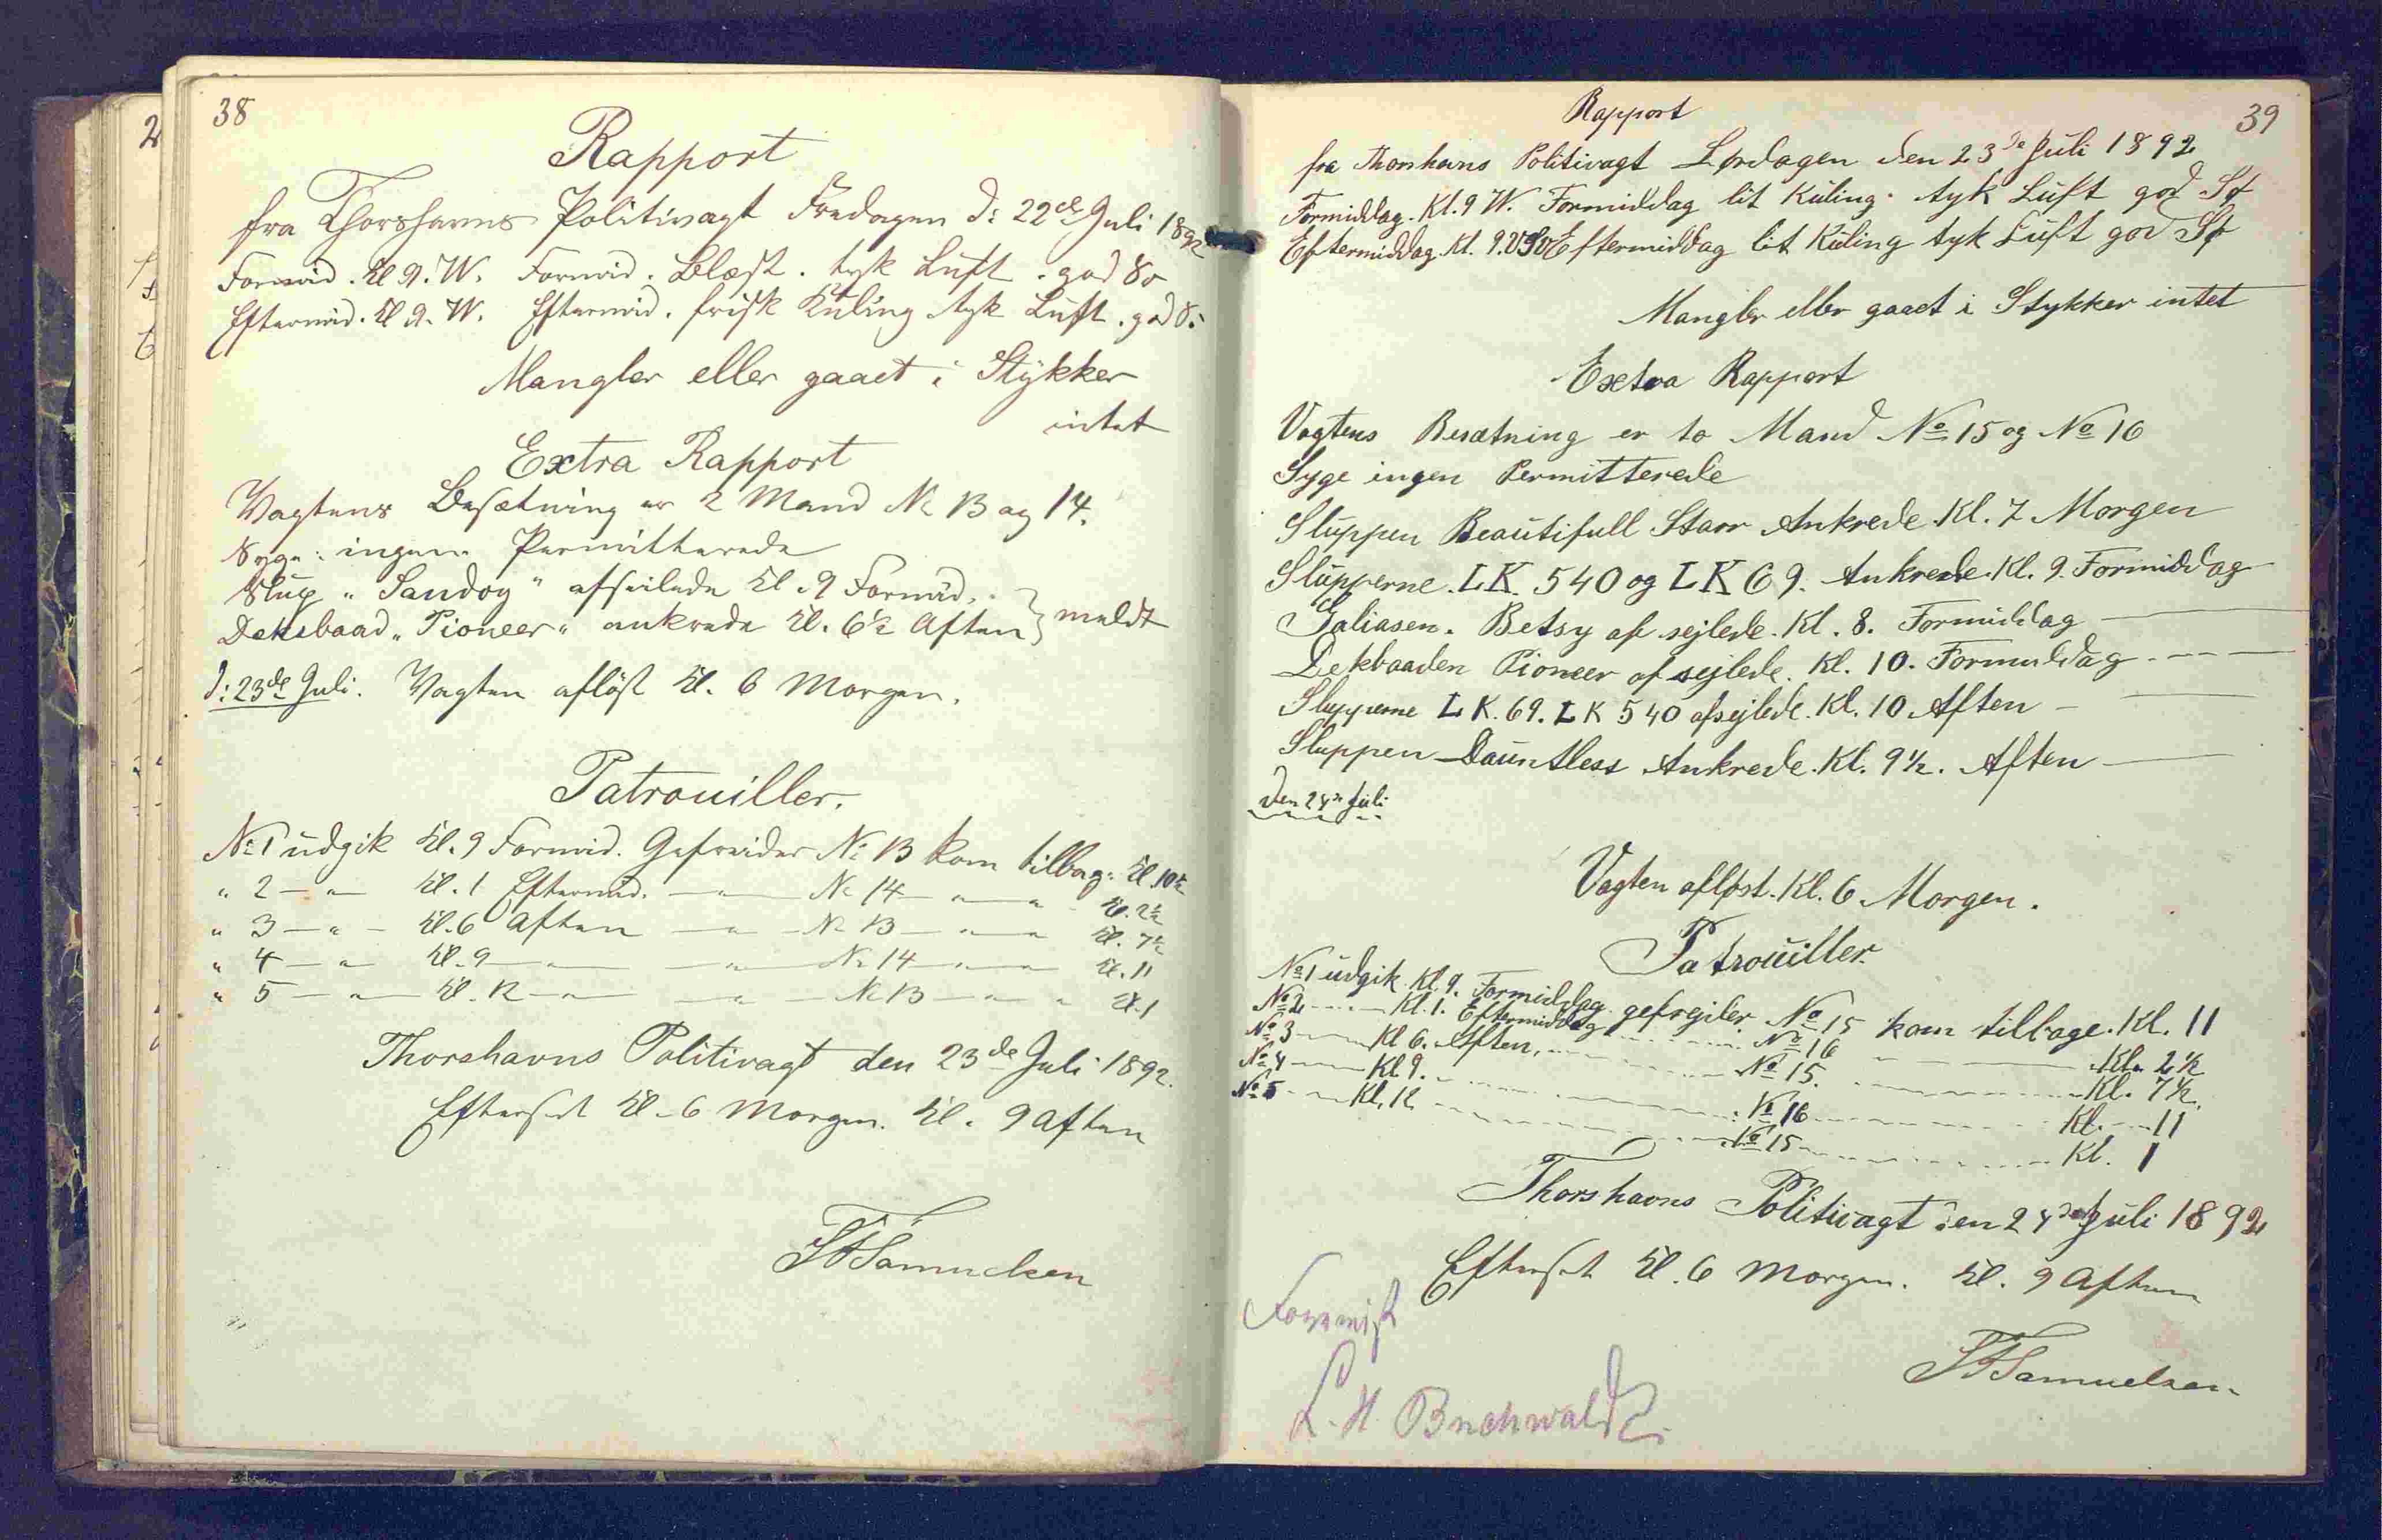 38
Rapport
fra Thorshavns Politivagt Fredagen d: 22de Juli 1892
Formid. Kl 9. W. Formid. Blæst. tyk Luft. god Sø
Eftermid. Kl 9. W. Eftermid. frisk Kuling tyk Luft. god S:
Mangler eller gaaet i Stykker
intet
Extra Rapport
Vagtens Besætning er 2 Mand No 13 og 14.
Syge: ingen Permitterede
Slup "Sandoy" afseilede Kl. 9 Formid.
Deksbaad "Pioneer" ankrede Kl. 6½ Aften } meldt
d: 23de Juli. Vagten afløst Kl. 6 Morgen.
Patrouiller.
No 1 udgik Kl. 9 Formid. Gefreider No 13 kom tilbag: Kl. 10½
" 2 — " — Kl. 1 Eftermid. — " — No 14 — " — " — Kl. 2½
" 3 — " — Kl. 6 Aften — " — No 13 — " — " — Kl. 7½
" 4 — " — Kl. 9 — " — — " — No 14 — " — " — Kl. 11
" 5 — " — Kl. 12 — " — — " — No 13 — " — " Kl. 1
Thorshavns Politivagt den 23de Juli 1892.
Efterset Kl. 6 Morgen. Kl. 9 Aften
Samuelsen
Rapport
39
fra Thorshavns Politivagt Lørdagen den 23de Juli 1892
Formiddag. Kl. 9 W. Formiddag lit Kuling. tyk Luft god Sø
Eftermiddag. Kl. 9. Eftermiddag lit Kuling tyk Luft god Sø
Mangler eller gaaet i Stykker intet
Extra Rapport
Vagtens Besætning er to Mand No 15 og No 16
Syge ingen Permitterede
Sluppen Beautifull Starr Ankrede Kl. 7 Morgen
Slupperne. LK. 540 og LK 69. Ankrede Kl. 9. Formiddag
Galiasen. Betsy af sejlede. Kl. 8. Formiddag —
Dekbaaden Pioneer af sejlede. Kl. 10. Formiddag. — —
Slupperne LK. 69. LK 540 afsejlede. Kl. 10 Aften —
Sluppen Dauntless Ankrede. Kl. 9½. Aften —
Den 24de Juli
Vagten afløst. Kl. 6 Morgen.
Patrouiller.
No 1 udgik Kl. 9. Formiddag gefrejder No 15 kom tilbage. Kl. 11
No 2 — Kl. 1. Eftermiddag — No 16 — Kl. 2½
No 3 — Kl 6. Aften, — No 15. — Kl. 7½.
No 4 — Kl 9. — No 16 — Kl. — 11
No 5 — Kl. 12 — No 15 — Kl. 1
Thorshavns Politivagt den 24de Juli 1892
Efterset Kl. 6 Morgen. Kl. 9 Aften
Samuelsen
L. H. Buchwald